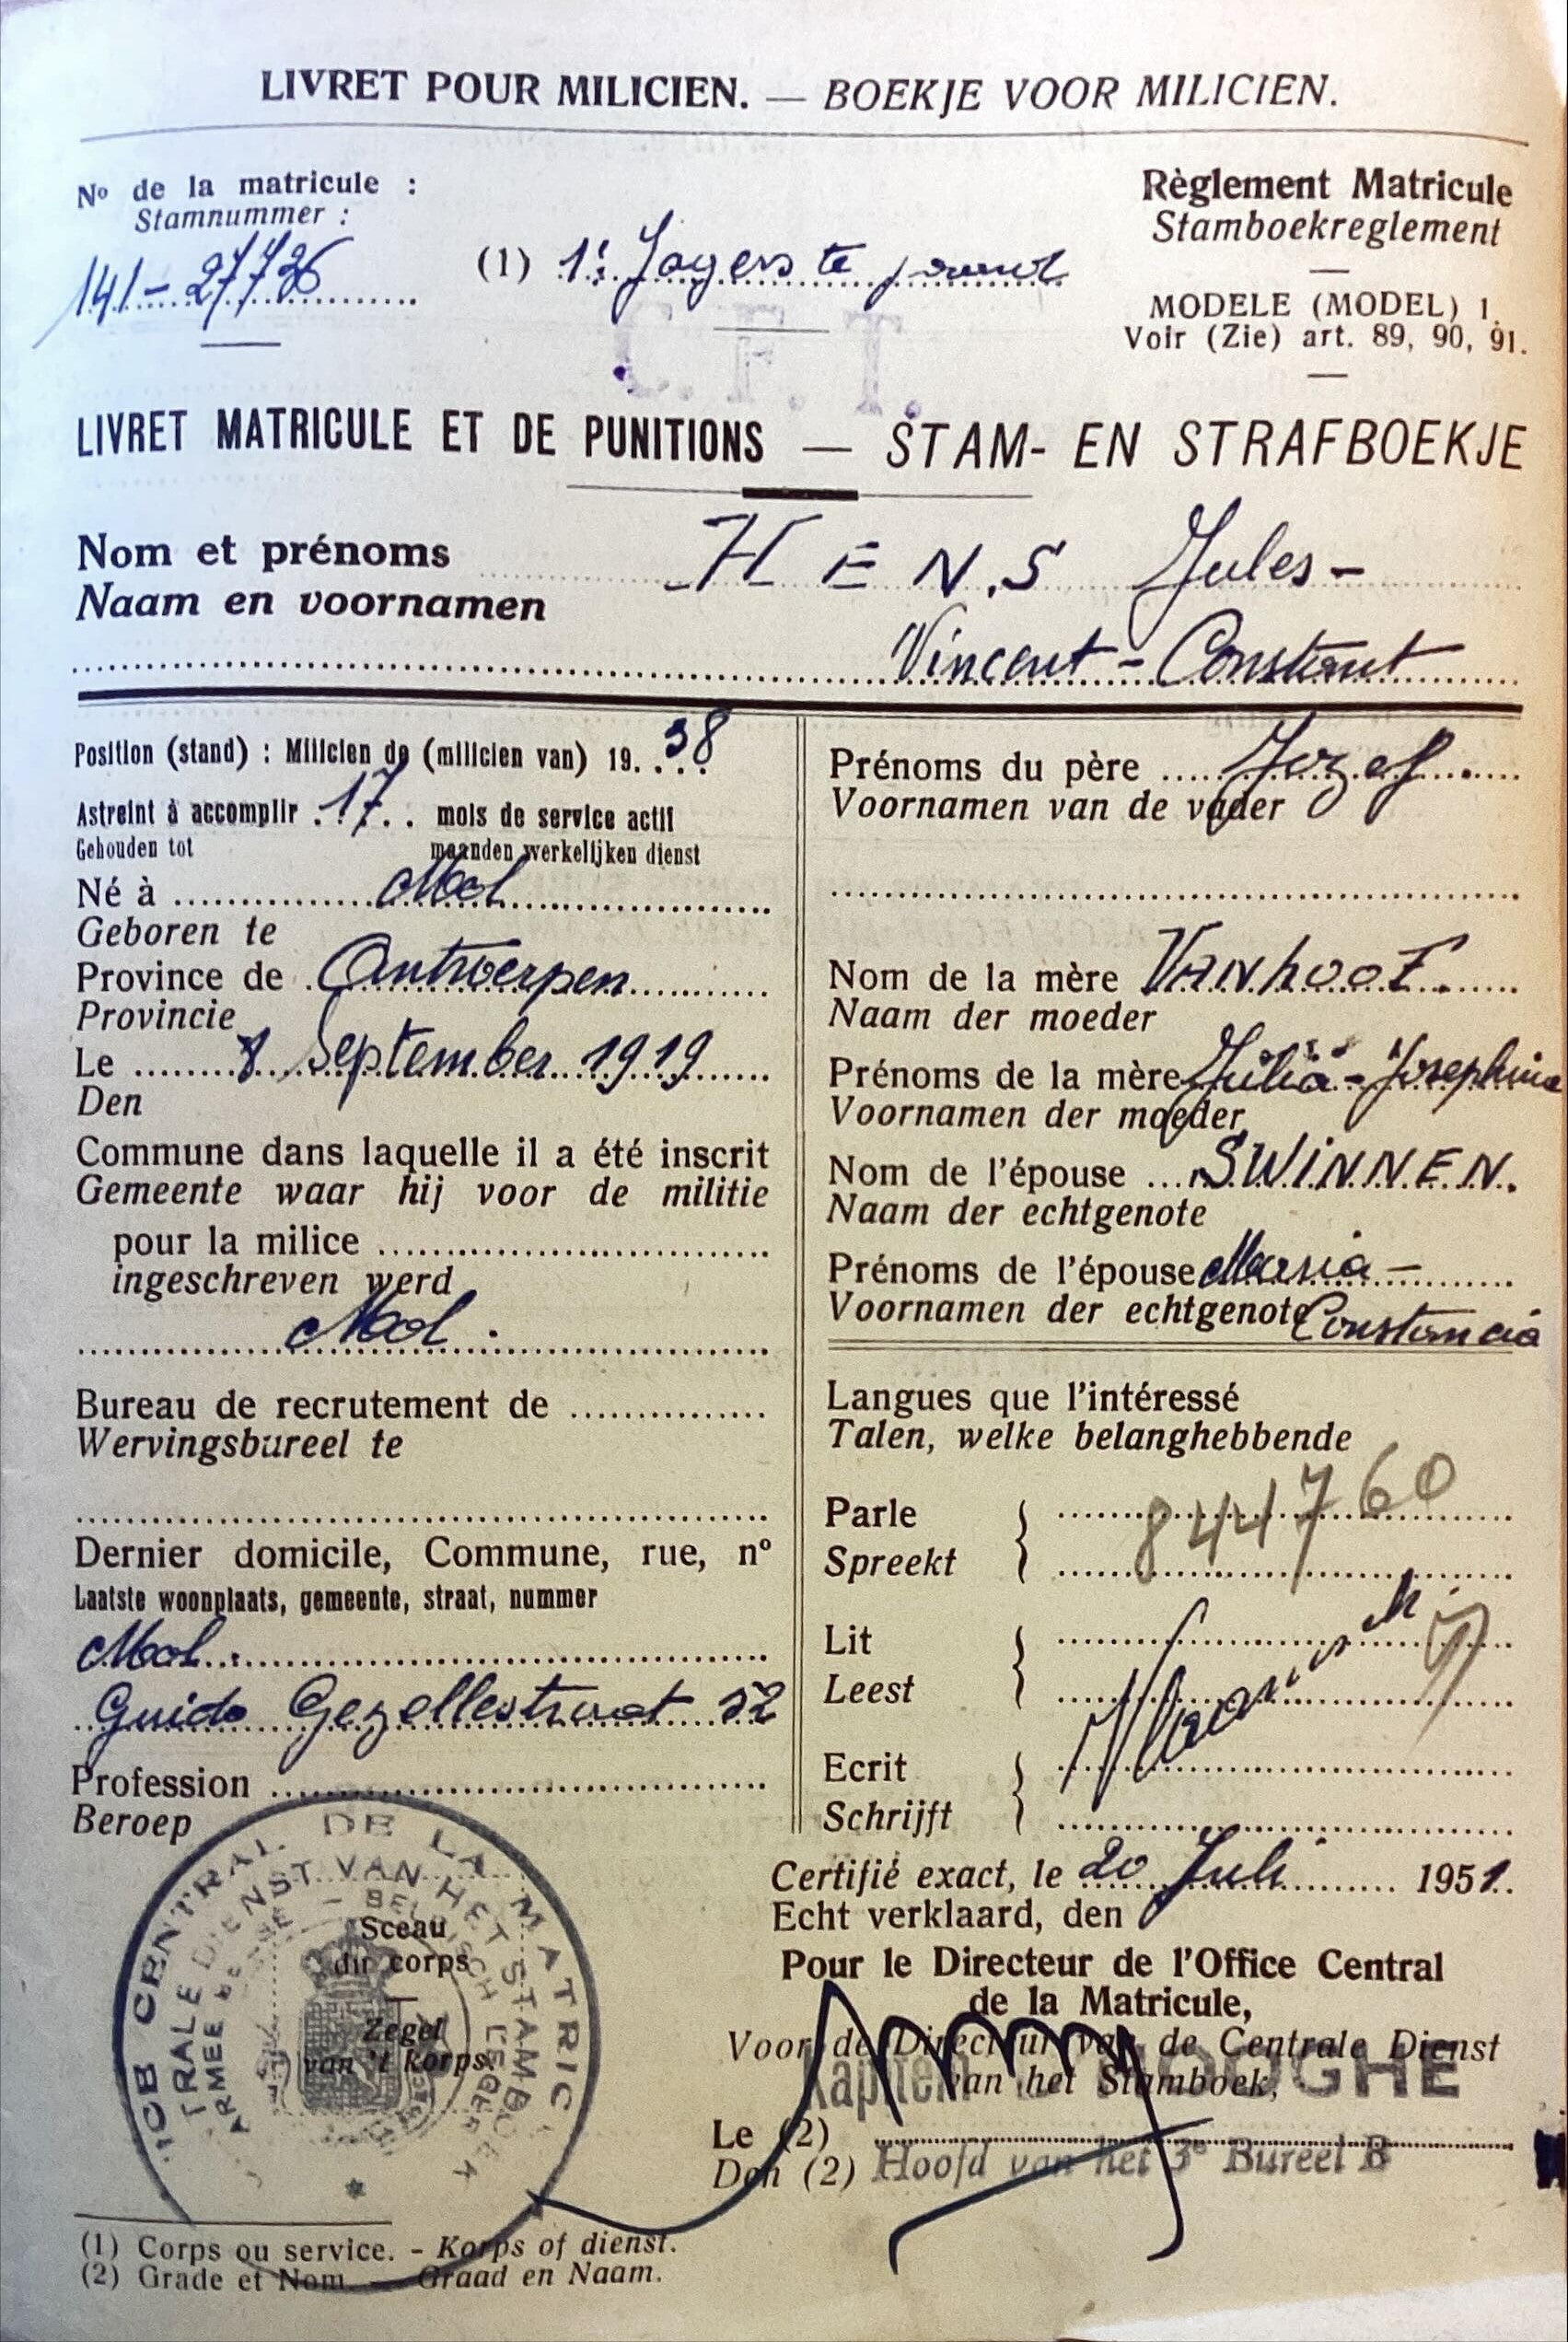 LIVRET POUR MILICIEN. — BOEKJE VOOR MILICIEN.
Nº de la matricule :
Stamnummer :
141-27726
(1) 1e Jagers te
Règlement Matricule
Stamboekreglement
MODELE (MODEL) 1.
Voir (Zie) art. 89, 90, 91.
LIVRET MATRICULE ET DE PUNITIONS — STAM- EN STRAFBOEKJE
Nom et prénoms HENS Jules-
Naam en voornamen
Vincent-Constant
Position (stand) : Milicien de (milicien van) 19.38
Astreint à accomplir 17 mois de service actif
Gehouden tot maanden werkelijken dienst
Né à Mol
Geboren te
Province de Antwerpen
Provincie
Le 8 September 1919
Den
Commune dans laquelle il a été inscrit
Gemeente waar hij voor de militie
pour la milice
ingeschreven werd
Mol.
Bureau de recrutement de
Wervingsbureel te
Dernier domicile, Commune, rue, nº
Laatste woonplaats, gemeente, straat, nummer
Mol.
Guido Gezellestraat 52
Profession
Beroep
Prénoms du père Jozef
Voornamen van de vader
Nom de la mère VANhooF
Naam der moeder
Prénoms de la mère Julia-Josephina
Voornamen der moeder
Nom de l'épouse SWINNEN.
Naam der echtgenote
Prénoms de l'épouse Maria-
Voornamen der echtgenote Constancia
Langues que l'intéressé
Talen, welke belanghebbende
Parle
Spreekt
844760
Lit
Leest
Vlaamsch
Ecrit
Schrijft
Certifié exact, le 20 Juli 1951.
Echt verklaard, den
Pour le Directeur de l'Office Central
de la Matricule,
Voor de Directeur van de Centrale Dienst
van het Stamboek,
Le (2)
Den (2) Hoofd van het 3e Bureel B
CENTRAL DE LA MATRIC
TRALE DIENST VAN HET STAMBOEK
ARMEE BELGE - BELGISCH LEGER
Sceau
du corps
Zegel
van 't korps.
(1) Corps ou service. - Korps of dienst.
(2) Grade et Nom. — Graad en Naam.